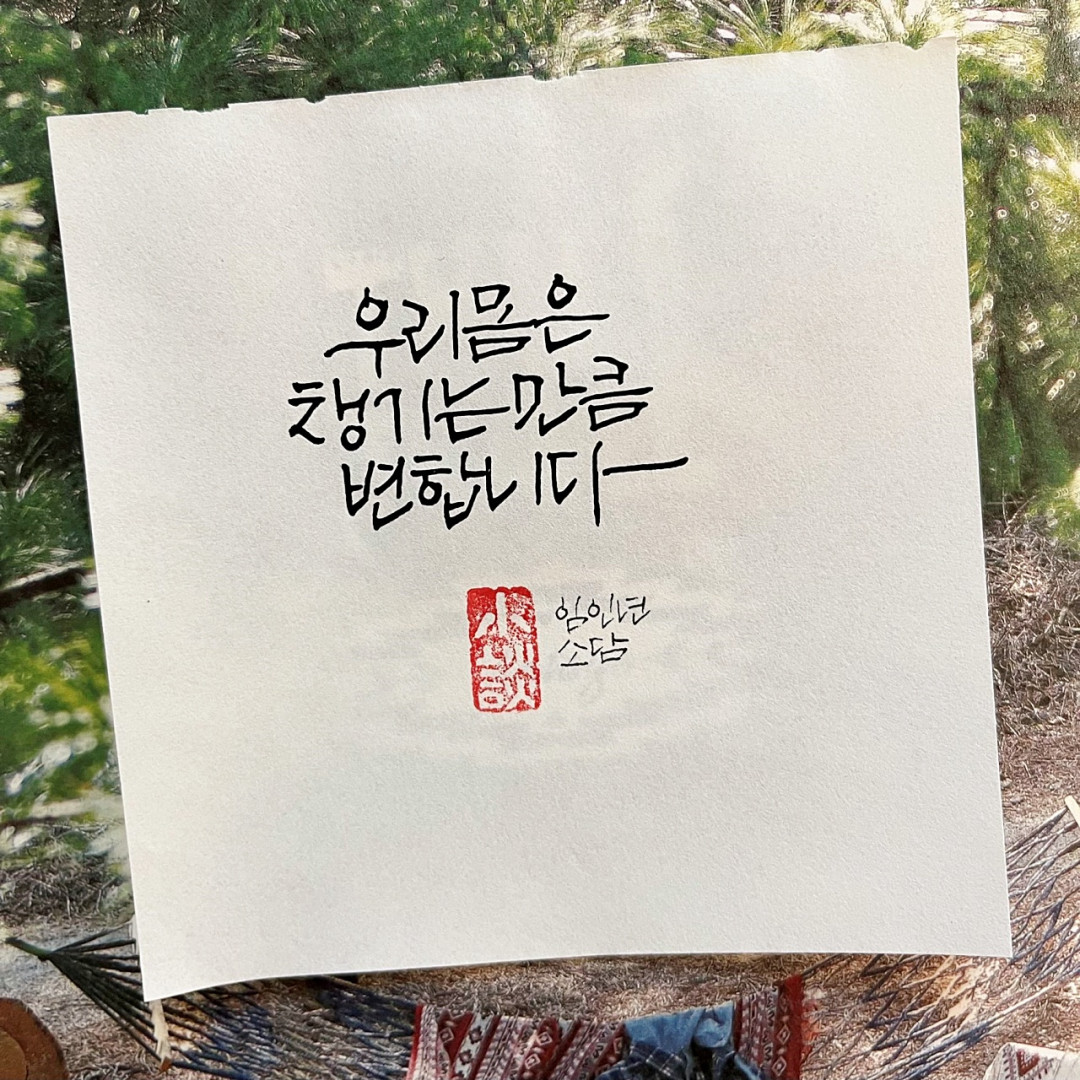 우리몸은
챙기는만큼
변합니다
임인년
소담
小談